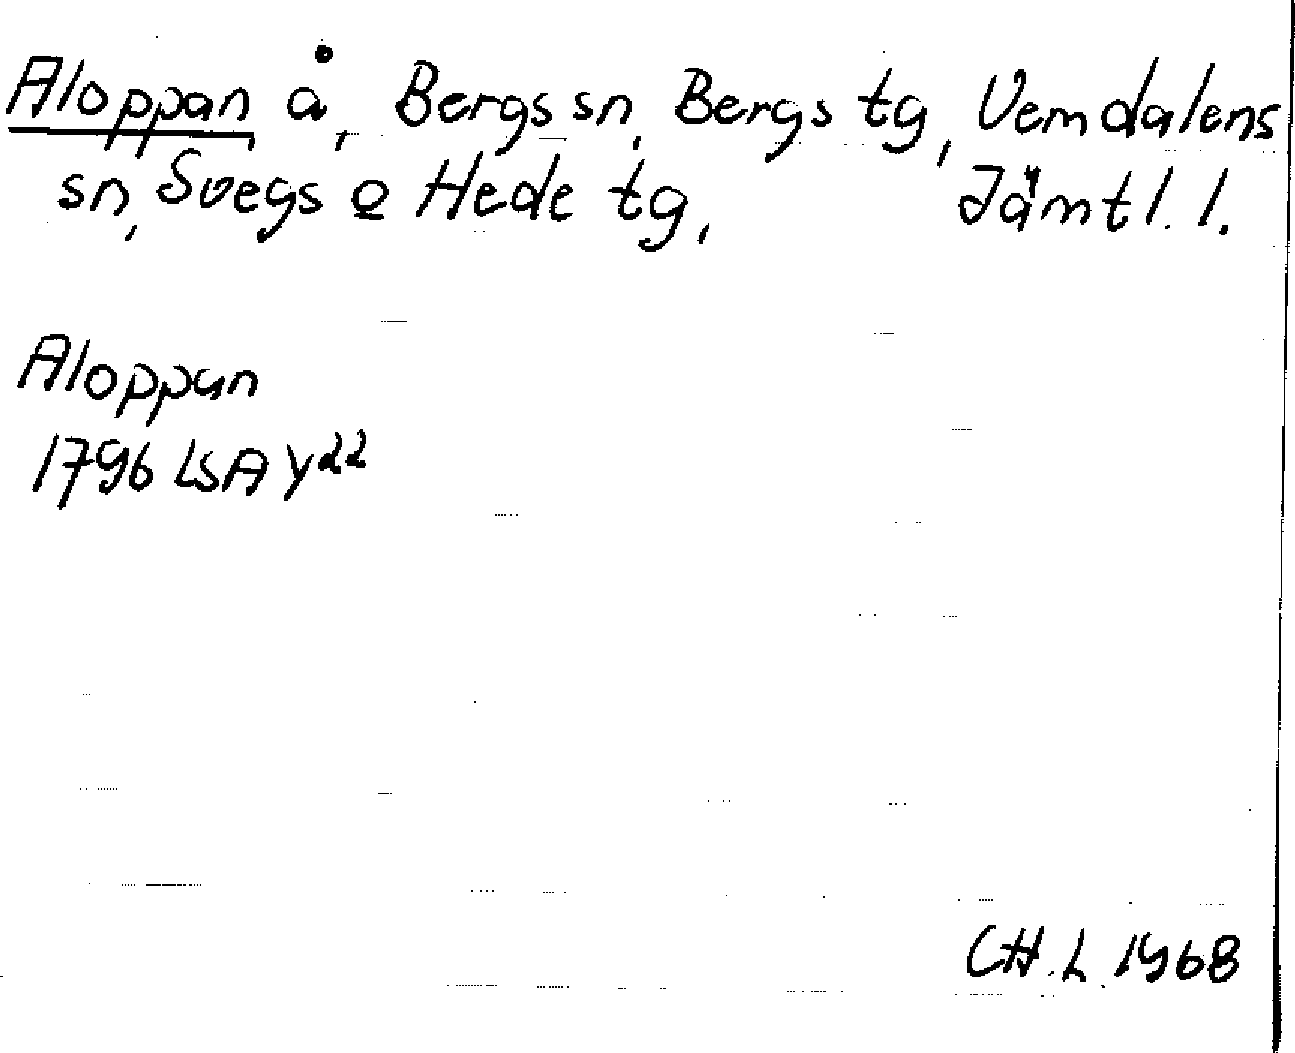 Aloppan å, Bergs sn, Bergs tg, Vemdalens
sn, Svegs o Hede tg, Jämtl. l.
Aloppan
1796 LSA Y22
CH. L. 1968